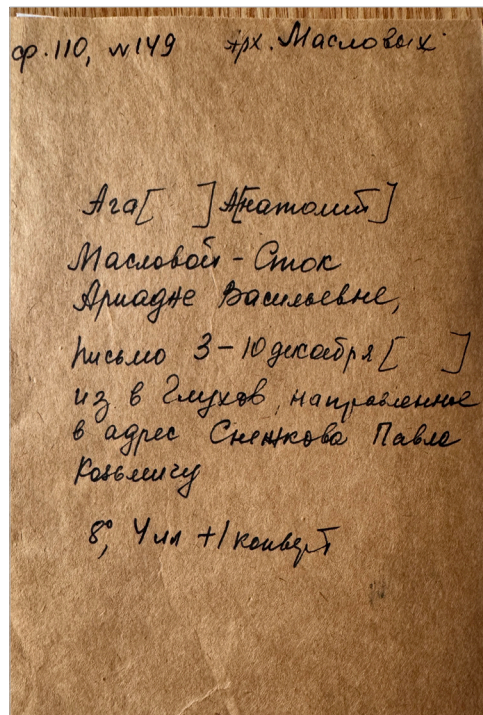 ф. 110, №149 Арх. Масловых
Ага[ ] А[натолий]
Масловой - Сток
Ариадне Васильевне,
письмо 3-10 декабря [ ]
из в Глухов, направленное
в адрес Снежкова Павла
Козьмичу
8°, 4 лл + 1 конверт